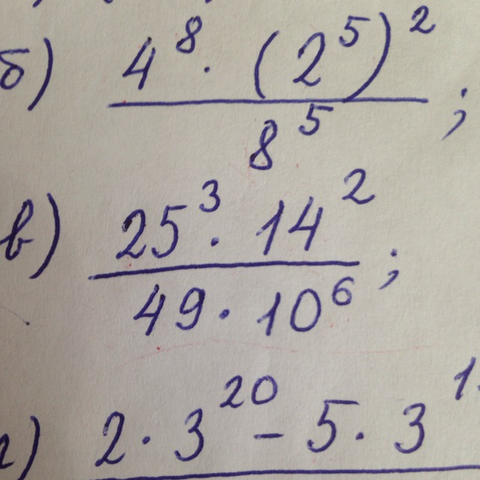 б) 4⁸ · (2⁵)²
8⁵ ;
в) 25³ · 14²
49 · 10⁶ ;
2 · 3²⁰ - 5 · 3